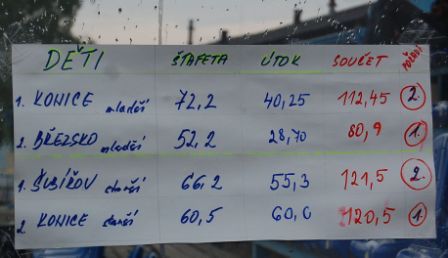 DĚTI ŠTAFETA ÚTOK SOUČET POŘADÍ
1. KONICE mladší 72,2 40,25 112,45 2.
2. BŘEZSKO mladší 52,2 28,70 80,9 1.
1. ŠUBÍŘOV starší 66,2 55,3 121,5 2.
2 KONICE starší 60,5 60,0 120,5 1.